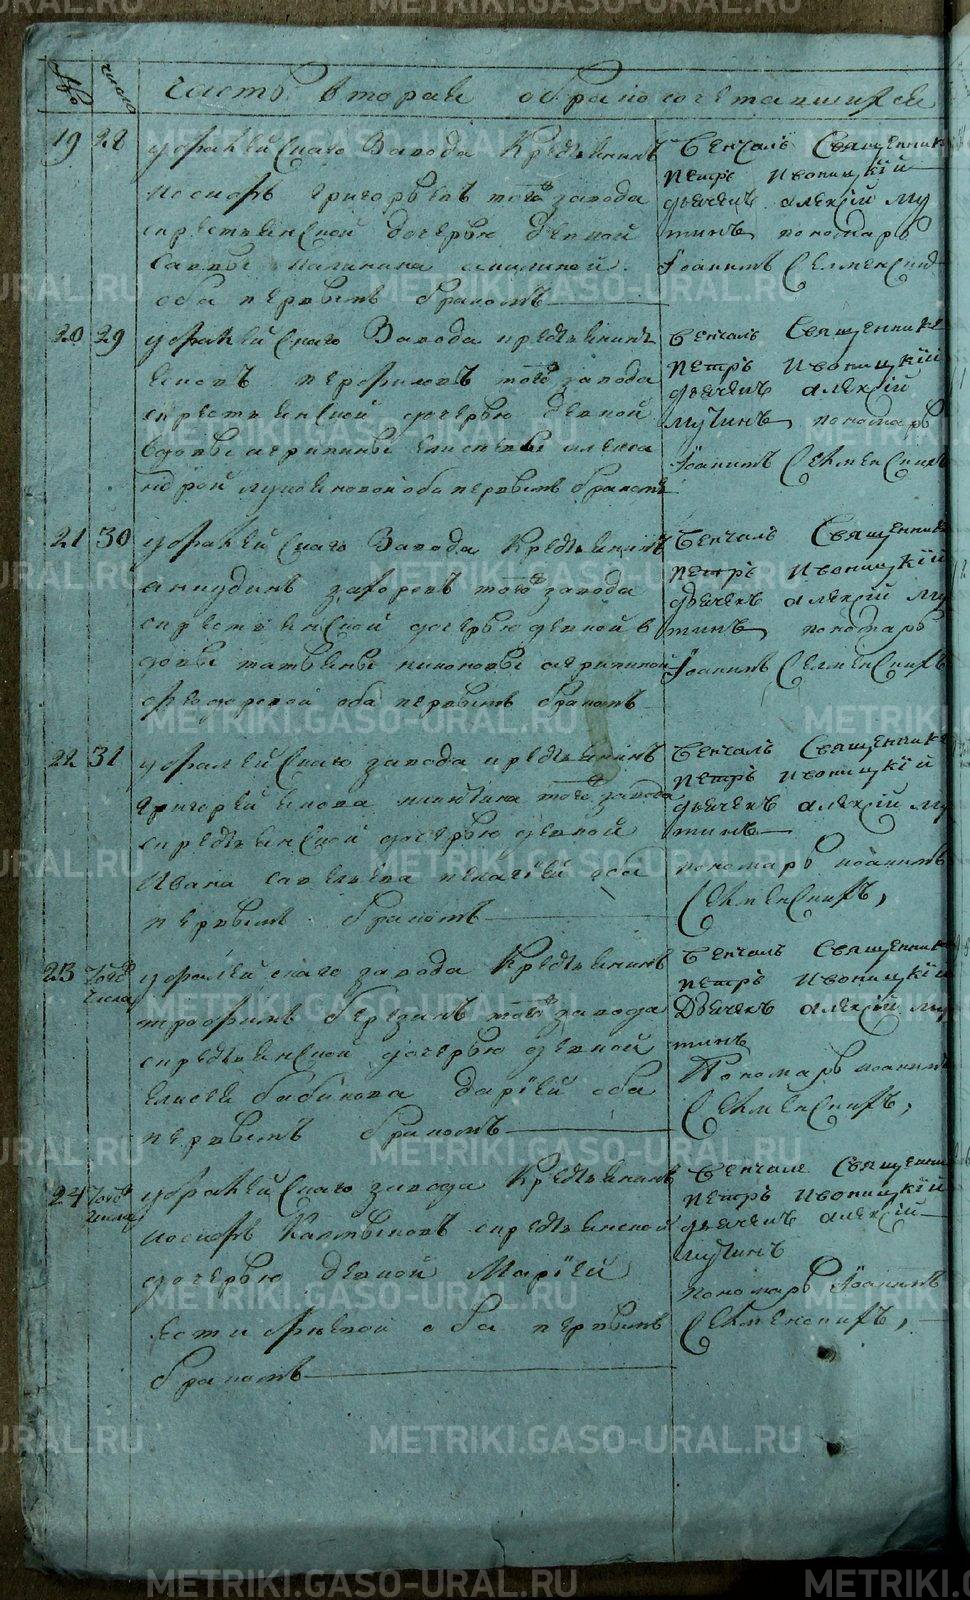 № число Часть вторая о бракосочетавшихся
19 28 уфалейскаго Завода Крестьянинъ
иосифъ григорьевъ того завода
скрестьянской дочерью девкой
Саввы Калинина акилиной
оба первымъ бракомъ
Венчалъ Священникъ
петръ Ивоницкій
дьячекъ алексій му
тинъ пономарь
Іоаннъ Селменскихъ
20 29 уфалейскаго Завода крестьянинъ
панфиловъ того завода
скрестьянской дочерью девкой
вдовы агрипины алекса
ндрой оба первымъ бракомъ
Венчалъ Священникъ
петръ Ивоницкій
дьячекъ алексій
мутинъ пономарь
Іоаннъ Селменскихъ
21 30 уфалейскаго Завода Крестьянинъ
анкудинъ захаровъ того завода
скрестьянской дочерью девкой в
довы татьяны никоновы агрипиной
федоровой оба первымъ бракомъ
Венчалъ Священникъ
петръ Ивоницкій
дьячекъ алексій му
тинъ пономарь
Іоаннъ Селменскихъ
22 31 уфалейскаго завода крестьянинъ
григорей никитина того завода
скрестьянской дочерью девкой
Ивана савельева пелагией оба
первымъ бракомъ
Венчалъ Священникъ
петръ Ивоницкій
дьячекъ алексій му
тинъ
пономарь иоаннъ
Селменскихъ,
23 того числа уфалейскаго завода Крестьянинъ
трофимъ березинъ того завода
скрестьянской дочерью девкой
елисея бабикова даріей оба
первымъ бракомъ
Венчалъ Священникъ
петръ Ивоницкій
Дьячекъ алексій му
тинъ
Пономарь иоаннъ
Селменскихъ,
24 того числа уфалейскаго завода Крестьянинъ
иосифъ Калмыковъ скрестьянской
дочерью девкой Маріей
оба первымъ
бракомъ
Венчалъ Священникъ
петръ Ивоницкій
дьячекъ алексій
мутинъ
пономарь Іоаннъ
Селменскихъ,
METRIKI.GASO-URAL.RU